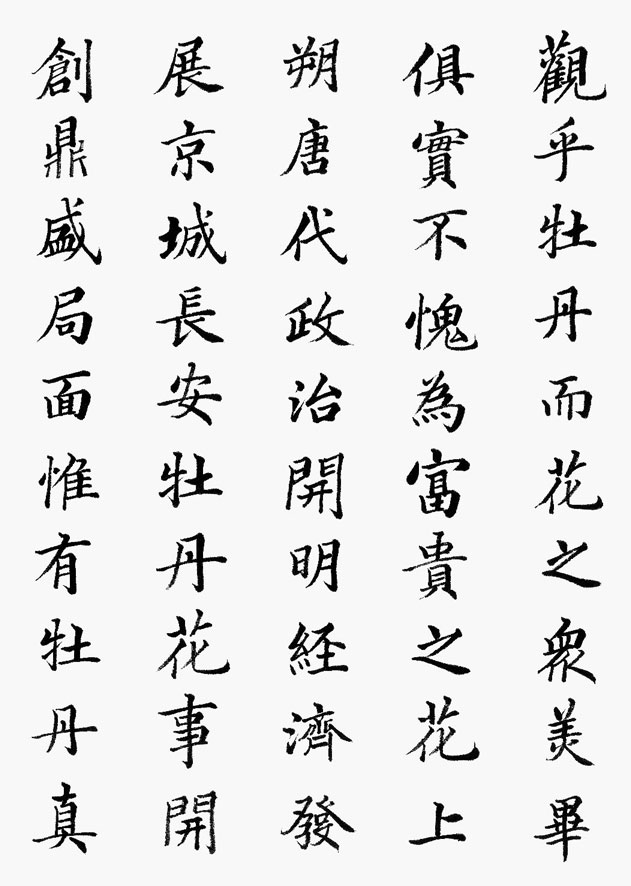 觀乎牡丹而花之眾美畢
俱實不愧為富貴之花上
朔唐代政治開明経濟發
展京城長安牡丹花事開
創鼎盛局面惟有牡丹真